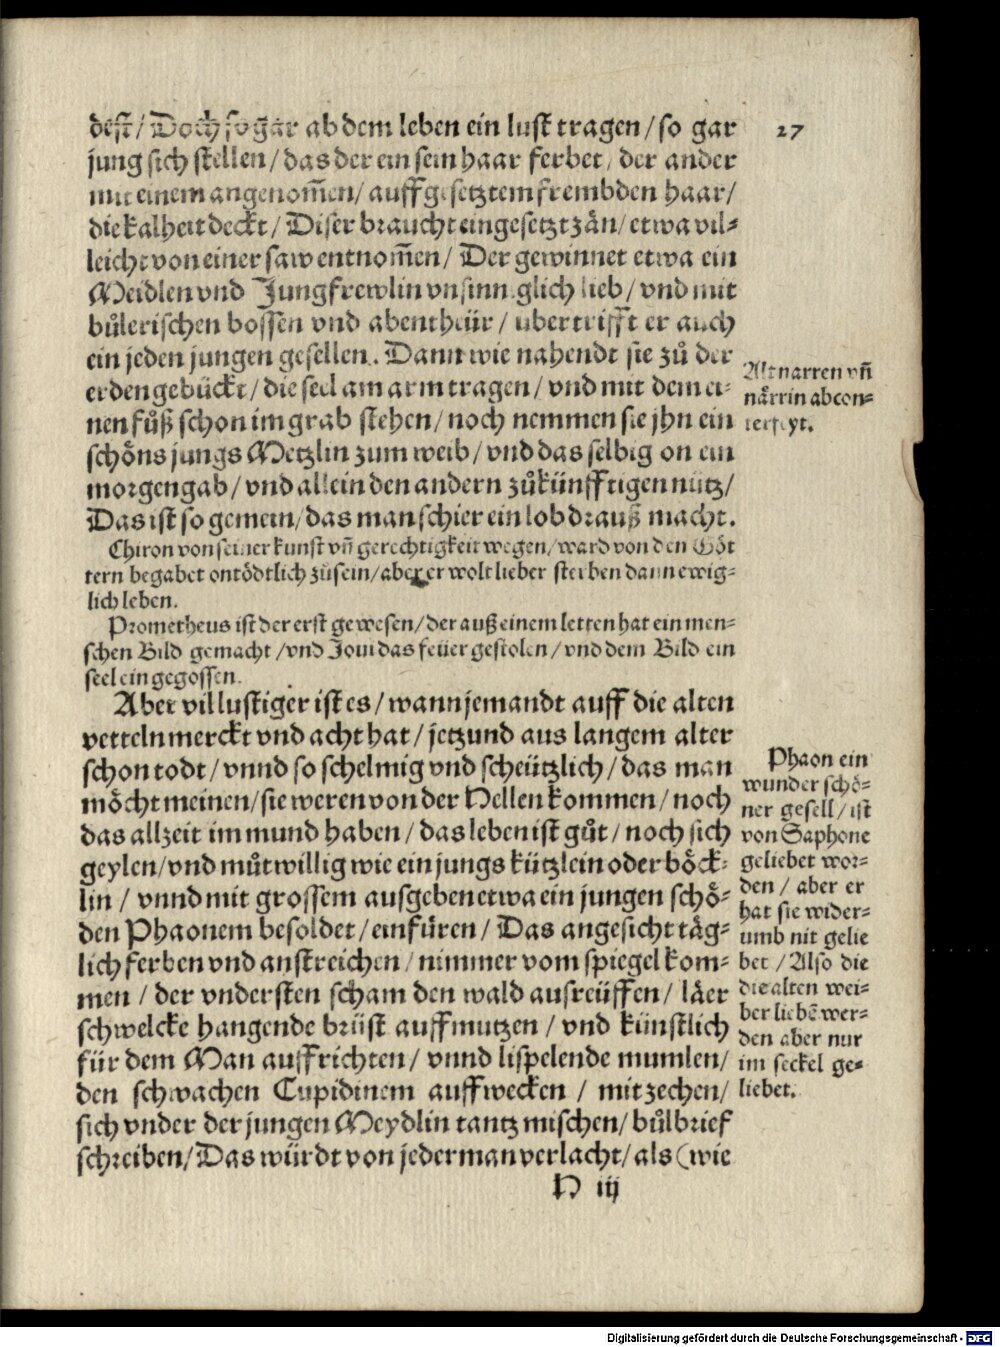 dest/ Doch so gar ab dem leben ein lust tragen/ so gar
27
jung sich stellen/ das der ein sein haar ferbet/ der ander
mit einem angenom̄en/ auffgesetztem frembden haar/
die kalheit deckt/ Diser braucht eingesetzt zän/ etwa vil-
leicht von einer saw entnom̄en/ Der gewinnet etwa ein
Meidlen vnd Jungfrewlin vnsinniglich lieb/ vnd mit
bůlerischen bossen vnd abentheür/ ubertrifft er auch
ein jeden jungen gesellen. Dann wie nahendt sie zů der
erden gebückt/ die seel am arm tragen/ vnd mit dem ei-
nen fůß schon im grab stehen/ noch nemmen sie jhn ein
schöns jungs Metzlin zum weib/ vnd das selbig on ein
morgengab/ vnd allein den andern zůkünfftigen nutz/
Das ist so gemein/ das man schier ein lob drauß macht.
Alt narren vn̄
närrin abcon-
terfeyt.
Chiron von seiner kunst vn̄ gerechtigkeit wegen/ ward von den Göt
tern begabet ontödtlich zů sein/ aber er wolt lieber sterben dann ewig-
lich leben.
Prometheus ist der erst gewesen/ der auß einem letten hat ein men-
schen Bild gemacht/ vnd Joui das feüer gestolen/ vnd dem Bild ein
seel eingegossen.
Aber vil lustiger ist es/ wann jemandt auff die alten
vetteln merckt vnd acht hat/ jetzund aus langem alter
schon todt/ vnnd so schelmig vnd scheützlich/ das man
möcht meinen/ sie weren von der Hellen kommen/ noch
das allzeit im mund haben/ das leben ist gůt/ noch sich
geylen/ vnd můtwillig wie ein jungs kützlein oder böck-
lin/ vnnd mit grossem ausgeben etwa ein jungen schö-
den Phaonem besoldet/ einfüren/ Das angesicht täg-
lich ferben vnd anstreichen/ nimmer vom spiegel kom-
men/ der vndersten scham den wald ausreüffen/ läer
schwelcke hangende brüst auffmutzen/ vnd künstlich
für dem Man auffrichten/ vnnd lispelende mumlen/
den schwachen Cupidinem auffwecken/ mit zechen/
sich vnder der jungen Meydlin tantz mischen/ bůlbrief
schreiben/ Das würdt von jederman verlacht/ als (wie
Phaon ein
wunder schö-
ner gesell/ ist
von Saphone
geliebet wor-
den/ aber er
hat sie wider-
umb nit gelie
bet/ Also die
die alten wei-
ber liebē wer-
den aber nur
im seckel ge-
liebet.
H iij
Digitalisierung gefördert durch die Deutsche Forschungsgemeinschaft - DFG